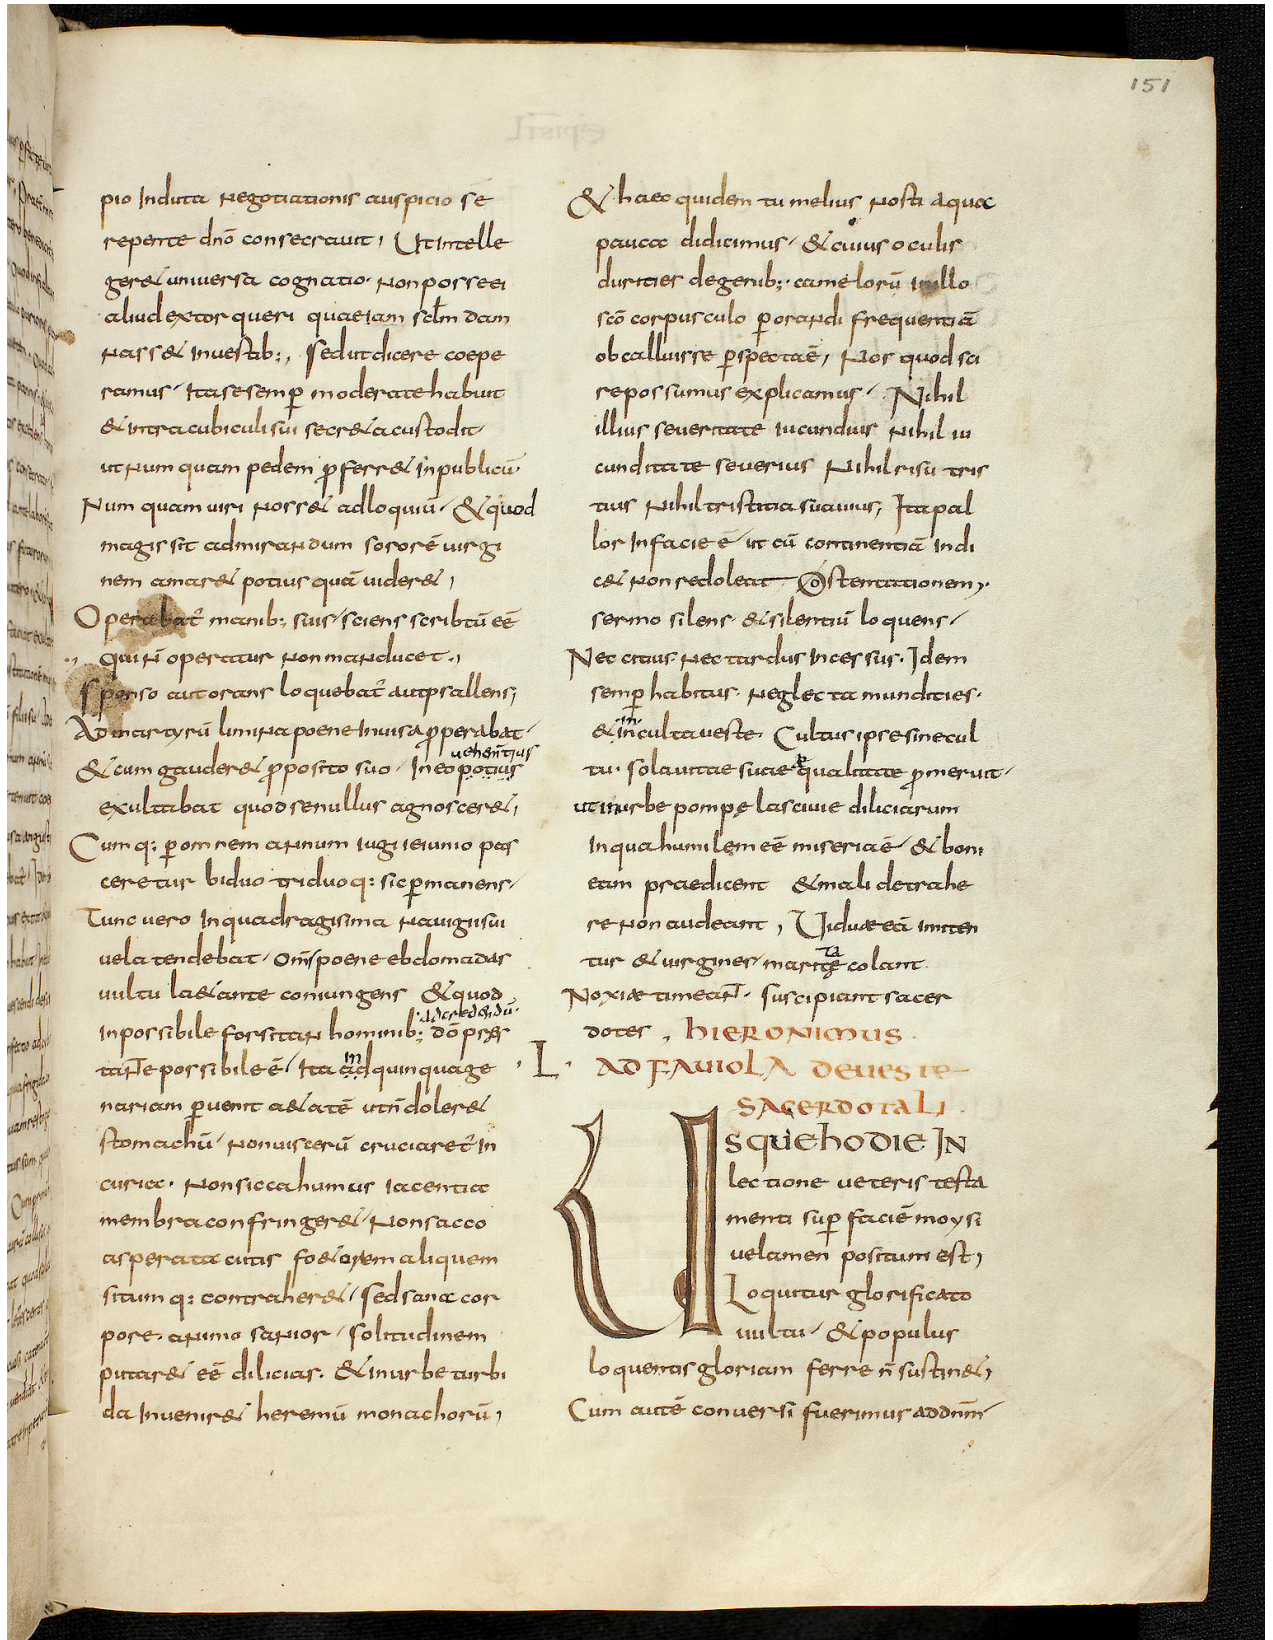 151
pio induta negotiationis auspicio se
repente dnō consecrauit, Ut intelle
ger& universa cognatio· non posse ei
aliud extorqueri quae iam sclm dam
nass& in vestib:, Sed ut dicere coepe
ramus, ita se semp̄ moderate habuit
& intra cubiculi sui secr&a custodit
ut numquam pedem p̄ferr& in publicū·
Numquam viri noss& adloquiū, & quod
magis sit admirandum sororē virgi
nem amar& potius quā vider&,
Operabat̄ manib; suis, sciens scribtū eē
qui n̄ operatur non manducet.,
Sponso aut orans loquebat̄ aut psallens;
Ad martyrū limina poene invisa p̄perabat,
uehentius
& cum gauder& p̄posito suo, In eo potius
exultabat quod se nullus agnoscer&,
Cumq: p̄ omnem annum iugi ieiunio pas
ceretur biduo triduoq: sic p̄manens,
Tunc vero in quadragisima navigii sui
vela tendebat, oms̄ poene ebdomadas
vultu la&ante coniungens & quod
·ad cred&dū·
inpossibile forsitan hominib; dō p̄ęs
in
tan̄te possibile ē, Ita ad quinquage
nariam p̄venit a&atē ut n̄ doler&
stomachū, non viscerū cruciaret̄ in
curia· non sicca humus iacentia
membra confringer&, Non sacco
asperata cutis foetorem aliquem
situmq: contraher&, Sed sana cor
pore· animo sanior, solitudinem
putar& eē dilicias· & in urbe turbi
da invenir& heremū monachorū,
& haec quidem tu melius nosti a qua
pauca didicimus, & cuius oculis
durities de genib; camelorū in illo
scō corpusculo p̄ orandi frequentiā
obcalluisse p̄specta ē, Nos quod sci
re possumus explicamus, Nihil
illius severitate iucundius nihil iu
cunditate severius Nihil risu tris
tius Nihil tristitia suavius, Ita pal
lor in facie ē, ut cū continentiā indi
c& non redoleat ostentationem,
sermo silens & silentiū loquens,
Nec citus nec tardus incessus· Idem
semp̄ habitus· neglecta mundities·
in
& in culta veste· Cultus ipse sine cul
tu· sola vitae suae qualitate p̄meruit,
ut in urbe pompę lascivie diliciarum
In qua humilem eē miseria ē, & boni
eam praedicent & mali detrahe
re non audeant, Uiduae eā imiten
ta
tur & virgines, maritę colant
Noxiae timean̄t· suscipiant sacer
dotes, HIERONIMUS·
·L· AD FAUIOLA DE UESTE
SACERDOTALI·
USQUE HODIE IN
lectione veteris testa
menti sup̄ faciē moysi
velamen positum est,
Loquitur glorificato
vultu, & populus
loquentis gloriam ferre n̄ sustin&,
Cum autē conversi fuerimus ad dn̄m